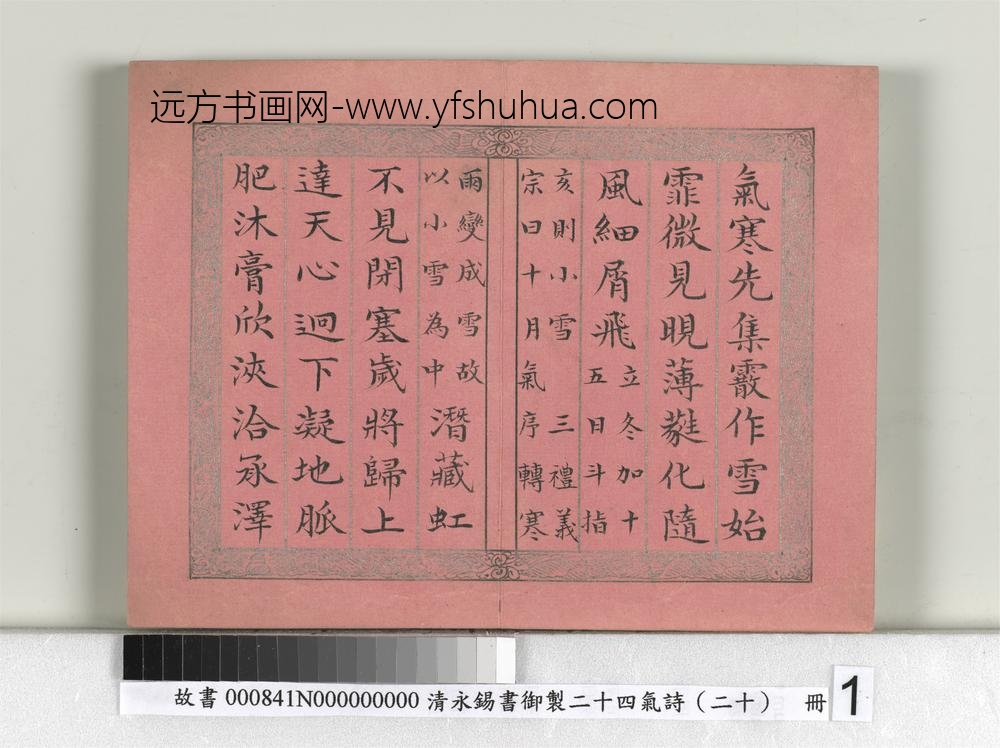 远方书画网-www.yfshuhua.com
氣寒先集霰作雪始
霏微見晛薄蕤化隨
風細屑飛
立冬加十
五日斗指
亥則小雪三禮義
宗曰十月氣序轉寒
雨變成雪故
以小雪為中
潛藏虹
不見閉塞歲將歸上
達天心逈下凝地脈
肥沐膏欣浹洽承澤
故書 000841N000000000 清永錫書御製二十四氣詩（二十） 冊 1